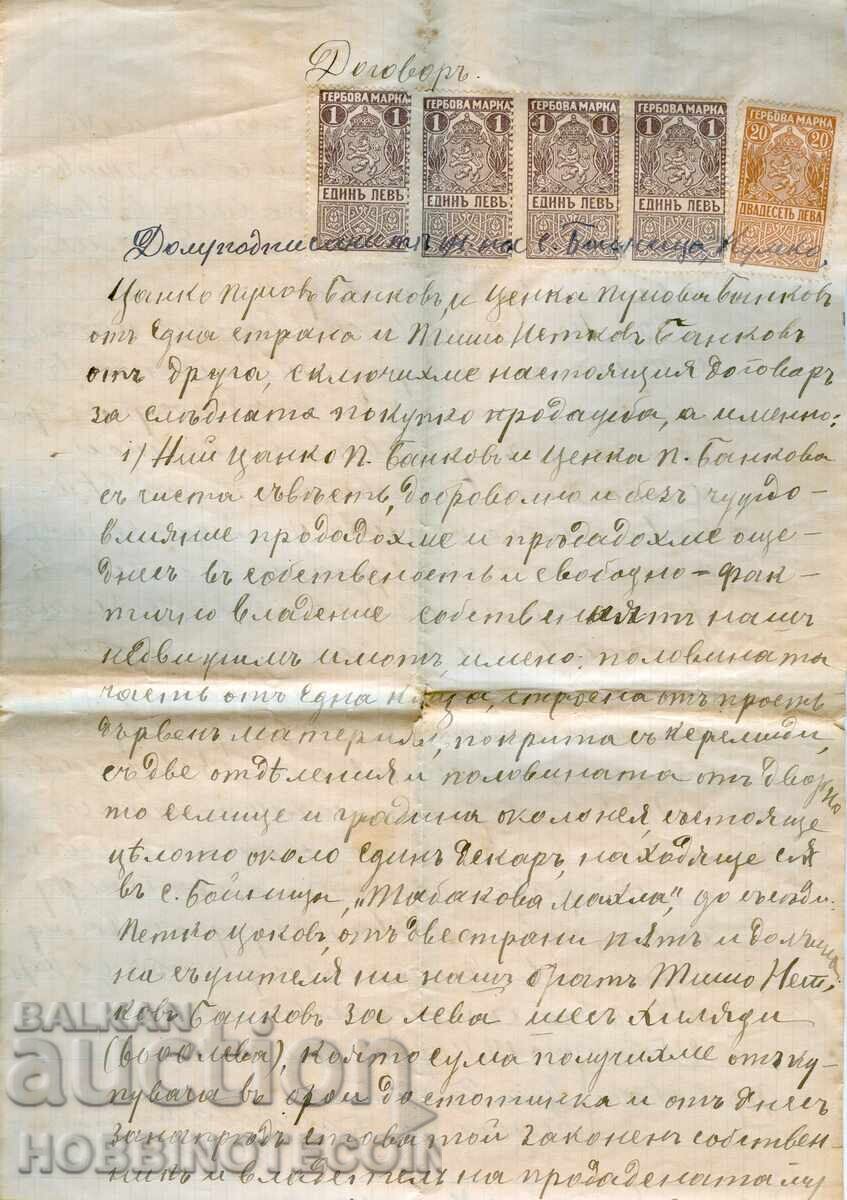 Договоръ.
ГЕРБОВА МАРКА ГЕРБОВА МАРКА ГЕРБОВА МАРКА ГЕРБОВА МАРКА ГЕРБОВА МАРКА
1 1 1 1 1 1 1 1 20 20
ЕДИНЪ ЛЕВЪ ЕДИНЪ ЛЕВЪ ЕДИНЪ ЛЕВЪ ЕДИНЪ ЛЕВЪ ДВАДЕСЕТЬ ЛЕВА
Долуподписанитѣ на с. Бойница,
Цанко Пуновъ Банковъ, и Ценка Пунова Банков
отъ една страна и Тишо Петковъ Банковъ
отъ друга, сключихме настоящия договоръ
за слѣдната покупко продажба, а именно:
1) Ний Цанко П. Банковъ и Ценка П. Банкова
съ чиста съвѣсть, доброволно и безъ чуждо-
влияние продадохме и прѣдадохме още-
днесъ въ собственость и свободно-фак-
тично владение собствениятъ нашъ
недвижимъ имотъ, имено: половината
часть отъ една кѫща, строена отъ простъ
дървенъ материялъ, покрита съ керемиди,
съ две отдѣления и половината отъ дворно
то селище и градина около нея, състояще
цѣлото около единъ декаръ, находяще ся
въ с. Бойница, „Табакова махла“, до съседи:
Петко Цоковъ, отъ две страни пѫтъ и
на същителя ни нашъ братъ Тишо Пет-
ковъ Банковъ за лева шесъ хиляди
(6000 лева), която сума получихме отъ ку-
пувача въ брои достотинка и отъ днесъ
занапрѣдъ става той законенъ собствен-
никъ и владетель на продадената му
BALKAN
auction
HOBBINOTECOIN